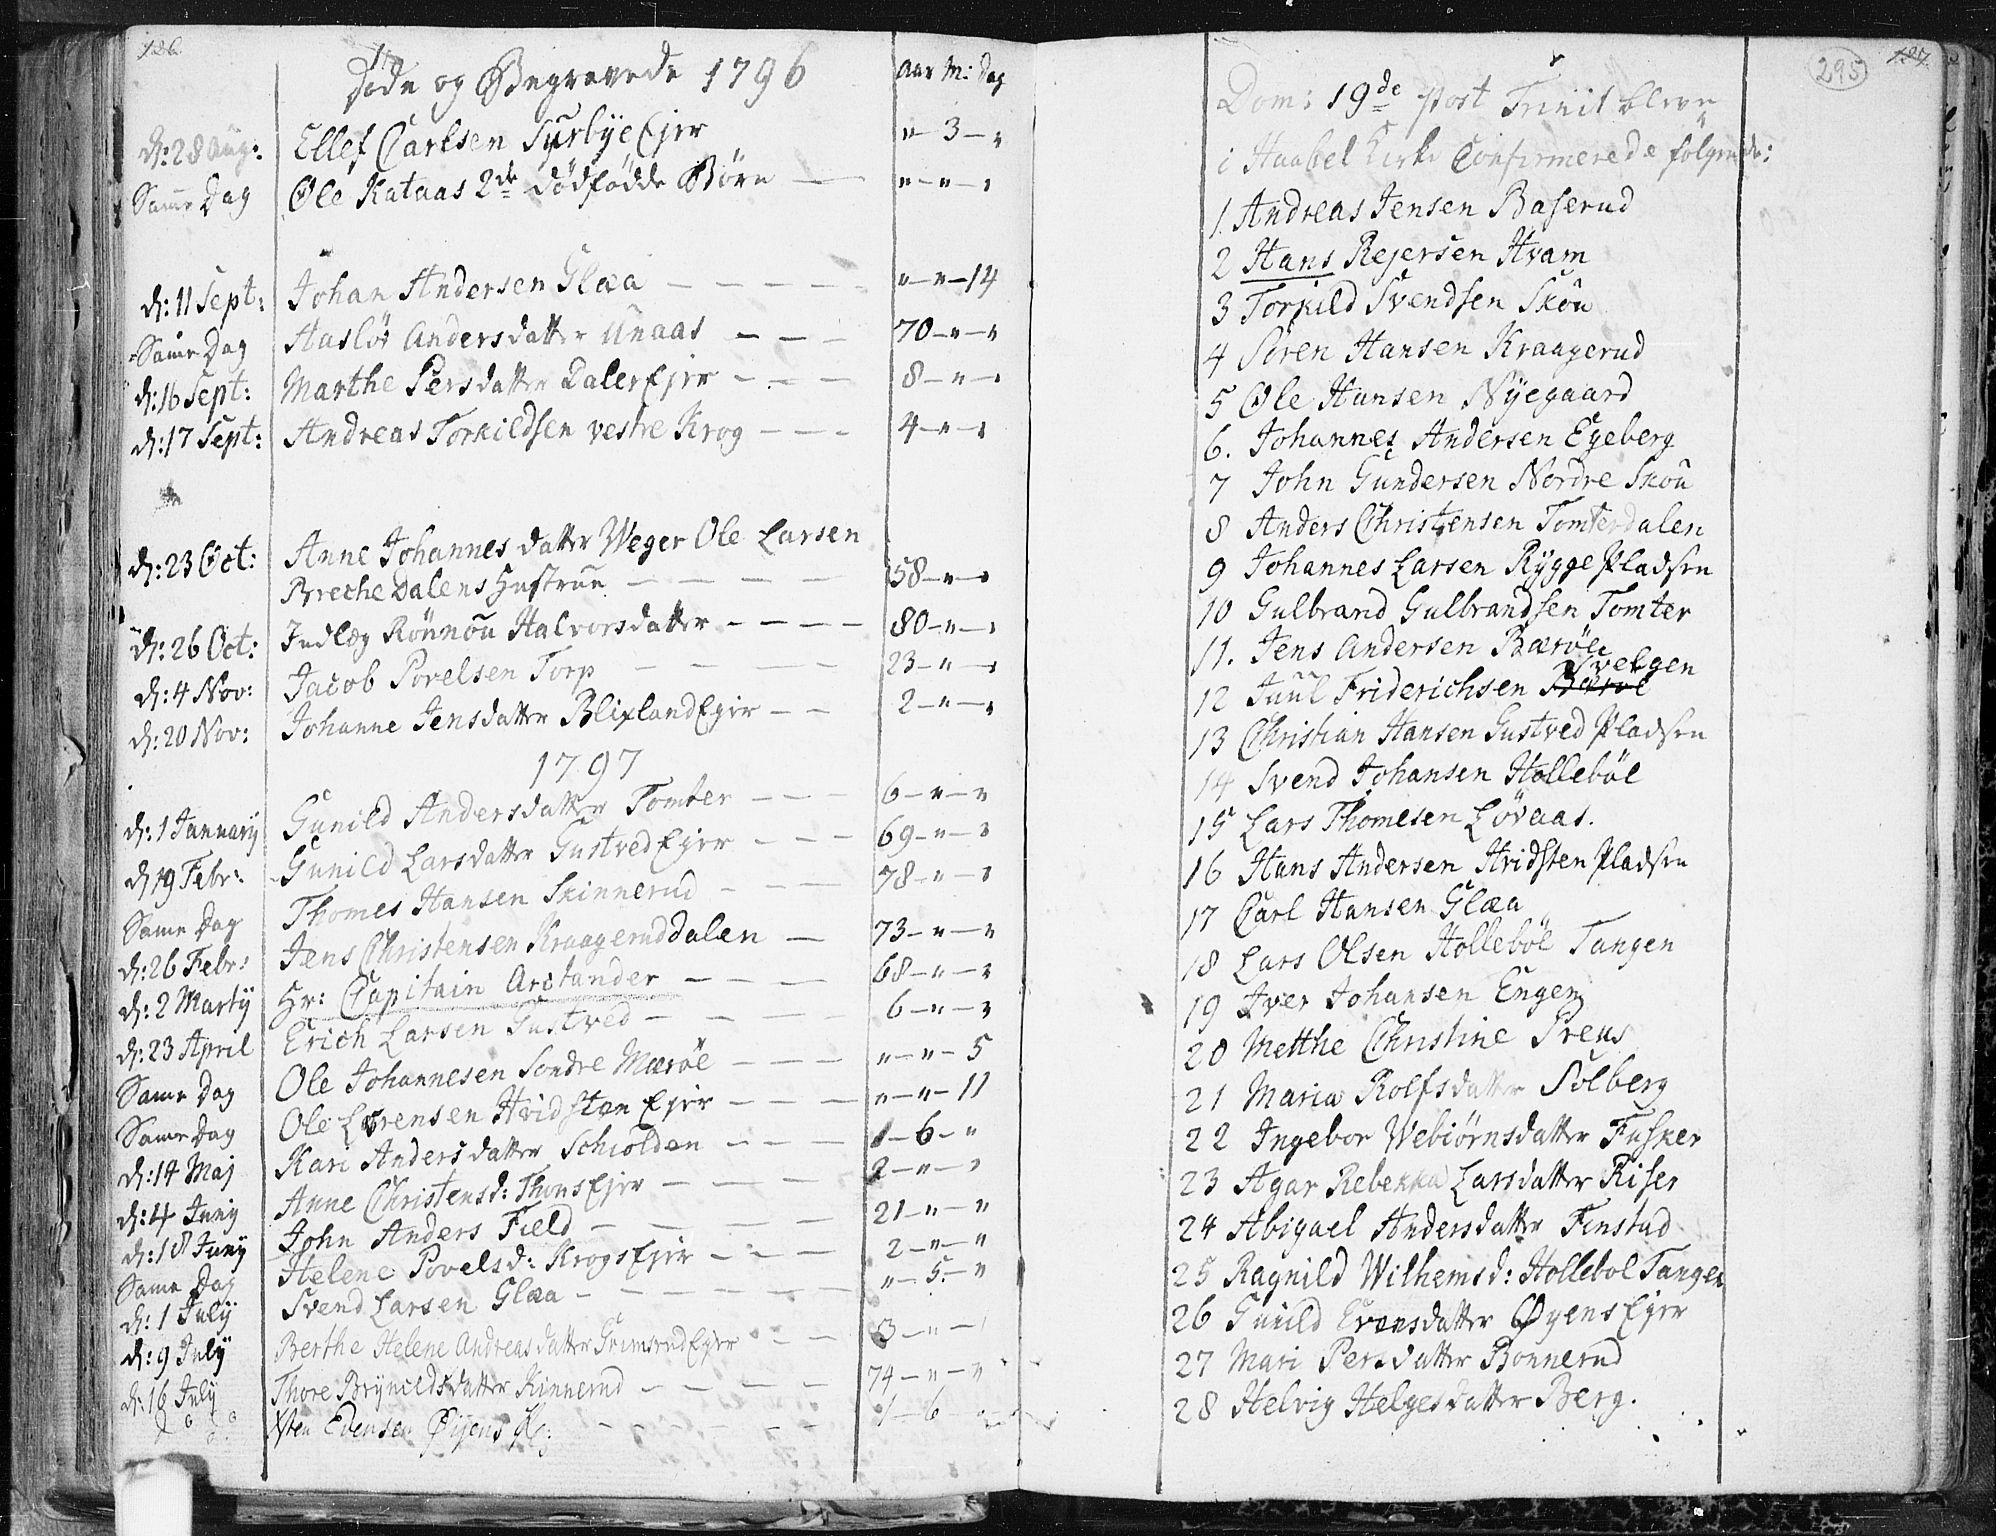 126.
Døde og Begravede 1796
Aar M: Dag
d: 28 Aug: Ellef Carlsen Sprbÿe Ejer " - 3 - "
Same Dag Ole Kataas 2de dödfödde Börn — " - " - "
d: 11 Sept: Johan Andersen Glæa — — — — " - " - 14
Same Dag Andersdatter Unaas — — — 70 - " - "
d: 16 Sept: Marthe Persdatter Daler Ejer — — — 8 - " - "
d: 17 Sept: Andreas Torkildsen vestre Krog — — — 4 - " - "
d: 23 Oct: Anne Johannesdatter Weger Ole Larsen
Breche Dalens Hustrue — — — — 58 - " - "
d: 26 Oct: Indlæg Rönnou Halvorsdatter — — — — 80 - " - "
d: 4 Nov: Jacob Povelsen Torp — — — — 23 - " - "
d: 20 Nov: Johanne Jensdatter Blixland Ejer — — 2 - " - "
1797
d: 1 January Gunild Andersdatter Tomter — — — 6 - " - "
d 19 Febr: Gunild Larsdatter Gustved Ejer — — 69 - " - "
Same Dag Thomes Hansen Skinnerud — — — 78 - " - "
d: 26 Febr: Jens Christensen Kraageruddalen — 73 - " - "
d: 2 Martÿ Hr: Capitain Arctander — — — 68 - " - "
d: 23 April Erich Larsen Gustved — — — — 6 - " - "
Same Dag Ole Johannesen Sondre Mæröe — — — " - " - 5
Same Dag Ole Lorensen Hvidsten Ejer — — — " - " - 11
d: 14 Maj Kari Andersdatter Schiolden — — — 1 - 6 - "
d: 4 Junÿ Anne Christensd: Thons Ejer — — — 2 - " - "
d: 18 Junÿ John Anders Field — — — — 21 - " - "
Same Dag Helene Povelsd: Krogs Ejer — — — 2 - " - "
d: 1 Julÿ Svend Larsen Glæa — — — — — " - 5 - "
d: 9 July Berthe Helene Andreasdatter Grimsrud Ejer — — 3 - " - "
d: 16 July Thore Brÿnildsdatter Kinnerud — — — — 74 - " - "
Evensen Øÿens — — — — 1 - 6
295
127.
Dom: 19de Post Trinit bleve
i Haabel Kirke Confirmerede følgende:
1. Andreas Jensen Baserud
2 Hans Rejersen Hvam
3 Torkild Svendsen Skou
4 Sören Hansen Kraagerud
5 Ole Hansen Nÿegaard
6. Johannes Andersen Egeberg
7 John Gundersen Nordre Skou
8 Anders Christensen Tomterdalen
9 Johannes Larsen Rÿgge Pladsen
10 Gulbrand Gulbrandsen Tomter
11. Jens Andersen Bæröe
12 Juul Friderichsen Bæröe Svelgen
13 Christian Hansen Gustved Pladsen
14 Svend Johansen Holleböl
15 Lars Thomesen Lövaas.
16 Hans Andersen Hvidsten Pladsen
17 Carl Hansen Glæa
18 Lars Olsen Holleböl Tangen
19 Iver Johansen Engen
20 Metthe Christine Preus
21 Maria Rolfsdatter Solberg
22 Ingebor Webiörnsdatter Fusker
23 Agar Rebekka Larsdatter Riser
24 Abigael Andersdatter Finstad
25 Ragnild Wilhemsd: Hollebol Tangen
26 Gunild Evensdatter Øÿens Ejer
27 Mari Persdatter Bonnerud
28 Helvig Helgesdatter Berg.